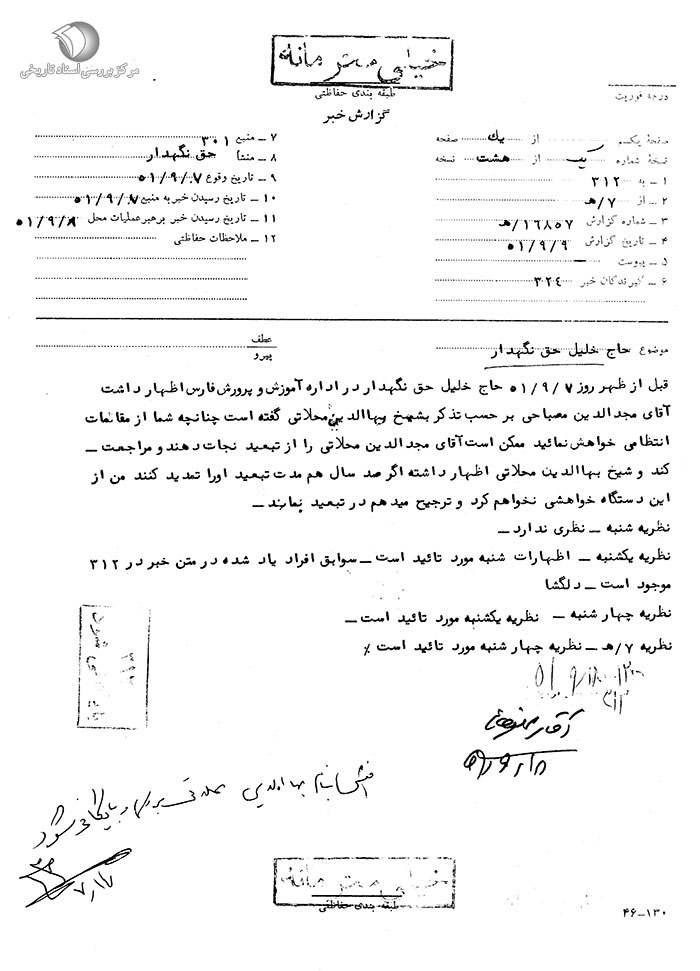 مرکز بررسی اسناد تاریخی
خیلی محرمانه
طبقه بندی حفاظتی
گزارش خبر
درجه فوریت
صفحهٔ یکم از یك صفحه
نسخهٔ شماره یک از هشت نسخه
۱ ـ به ۳۱۲
۲ ـ از ۷/هـ
۳ ـ شماره گزارش ۱۶۸۵۷/هـ
۴ ـ تاریخ گزارش ۵۱/۹/۹
۵ ـ پیوست ـ
۶ ـ گیرندگان خبر ۳۲۴
۷ ـ منبع ۳۰۱
۸ ـ منشأ حق نگهدار
۹ ـ تاریخ وقوع ۵۱/۹/۰۷
۱۰ ـ تاریخ رسیدن خبر به منبع ۵۱/۹/۰۷
۱۱ ـ تاریخ رسیدن خبر برهبر عملیات محل ۵۱/۹/۸
۱۲ ـ ملاحظات حفاظتی
موضوع حاج خلیل حق نگهدار
عطف
پیرو
قبل از ظهر روز ۵۱/۹/۷ حاج خلیل حق نگهدار در اداره آموزش و پرورش فارس اظهار داشت
آقای مجدالدین مصباحی بر حسب تذکر بشیخ بهاالدین محلاتی گفته است چنانچه شما از مقامات
انتظامی خواهش نمائید ممکن است آقای مجدالدین محلاتی را از تبعید نجات دهند و مراجعت ـ
کند و شیخ بهاالدین محلاتی اظهار داشته اگر صد سال هم مدت تبعید اورا تمدید کنند من از
این دستگاه خواهشی نخواهم کرد و ترجیح میدهم در تبعید بمانند ـ
نظریه شنبه ـ نظری ندارد ـ
نظریه یکشنبه ـ اظهارات شنبه مورد تائید است ـ سوابق افراد یاد شده در متن خبر در ۳۱۲
موجود است ـ دلگشا
نظریه چهار شنبه ـ نظریه یکشنبه مورد تائید است ـ
نظریه ۷/هـ ـ نظریه چهار شنبه مورد تائید است ٪
۳۱۲
آقای
بهاءالدین محلاتی بایگانی شود
۷/۱۷
خیلی محرمانه
طبقه بندی حفاظتی
۴۶ـ۱۳۰